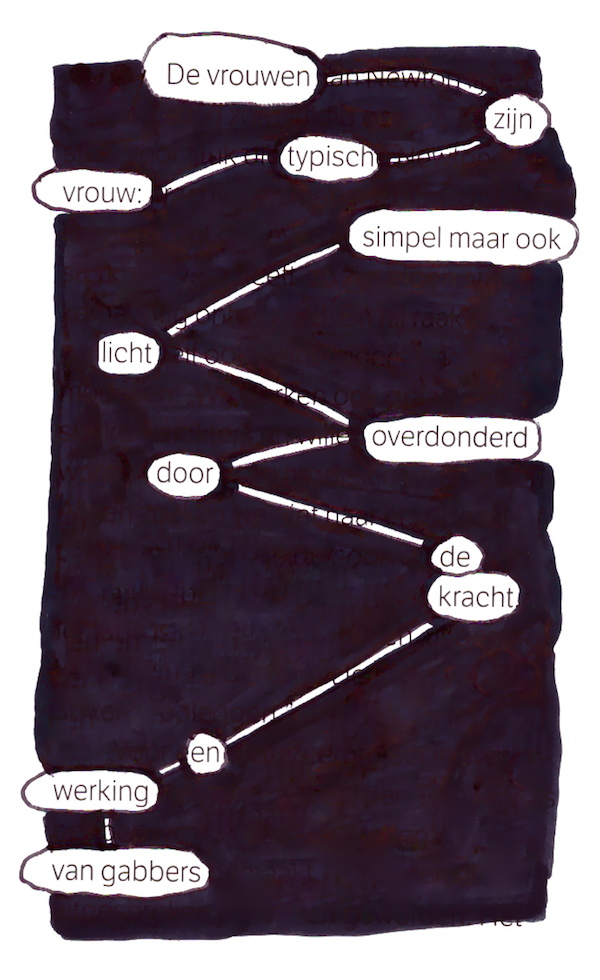 De vrouwen
zijn
typisch
vrouw:
simpel maar ook
licht
overdonderd
door
de
kracht
en
werking
van gabbers